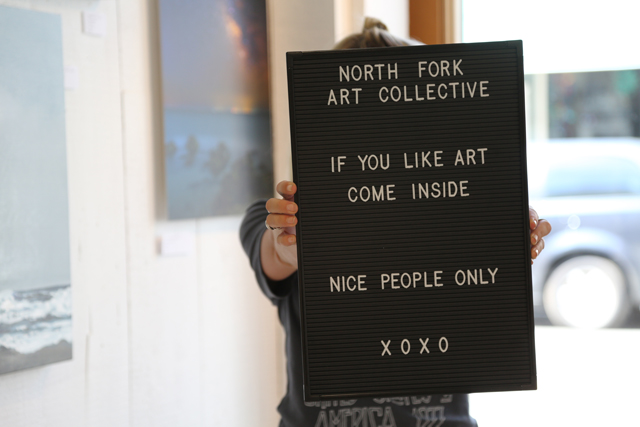 NORTH FORK
ART COLLECTIVE
IF YOU LIKE ART
COME INSIDE
NICE PEOPLE ONLY
XOXO
AMERICA